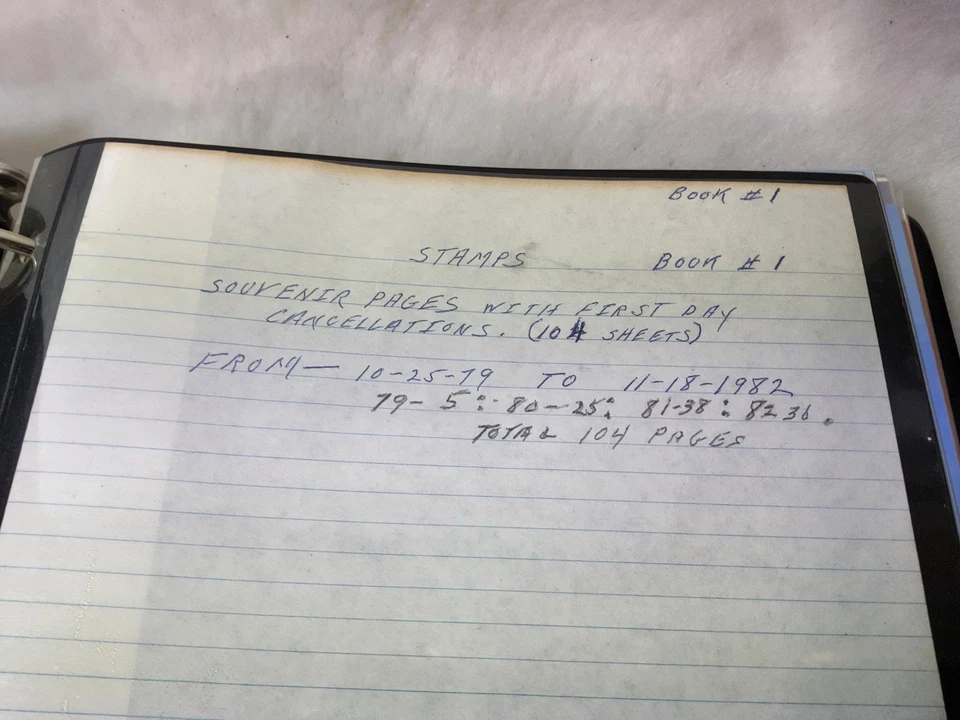 BOOK #1
STAMPS BOOK #1
SOUVENIR PAGES WITH FIRST DAY
CANCELLATIONS. (104 SHEETS)
FROM— 10-25-79 TO 11-18-1982
79- 5: 80-25: 81-38: 82 36.
TOTAL 104 PAGES